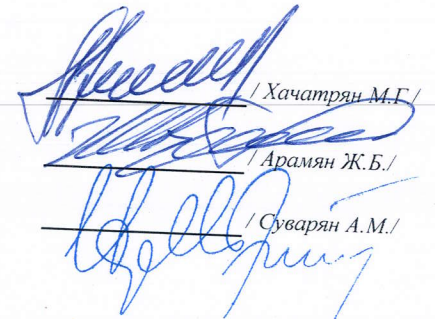 / Хачатрян М.Г./
/ Арамян Ж.Б./
/ Суварян А.М./